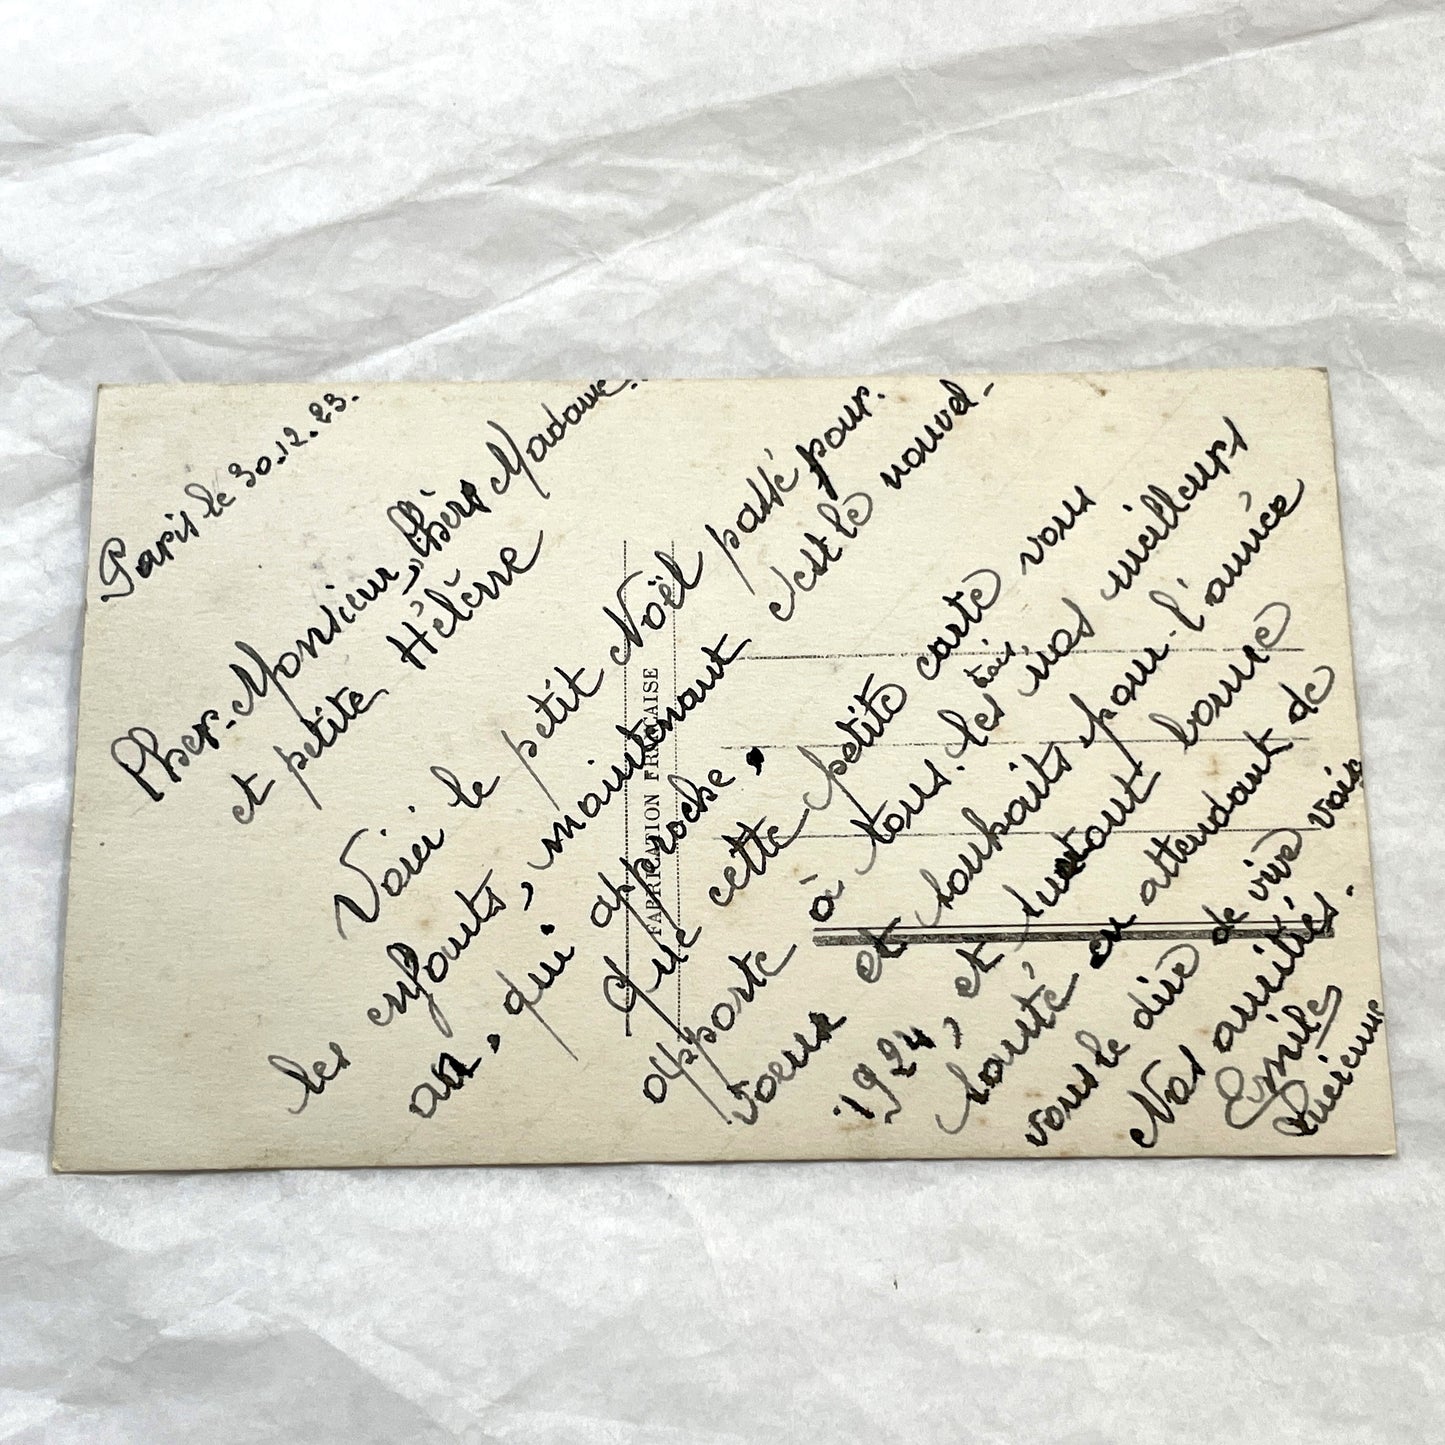 Paris le 30.12.23.
Cher Monsieur, Chère Madame
et petite Hélène
Voici le petit Noël passé pour
les enfants, maintenant c'est le nouvel
an. qui approche.
Que cette petite carte vous
apporte à tous les nos meilleurs
voeux et souhaits pour l'année
1924, et surtout bonne
santé en attendant de
vous le dire de vive voix
Nos amitiés.
Emile
Lucienne
FABRICATION FRANÇAISE